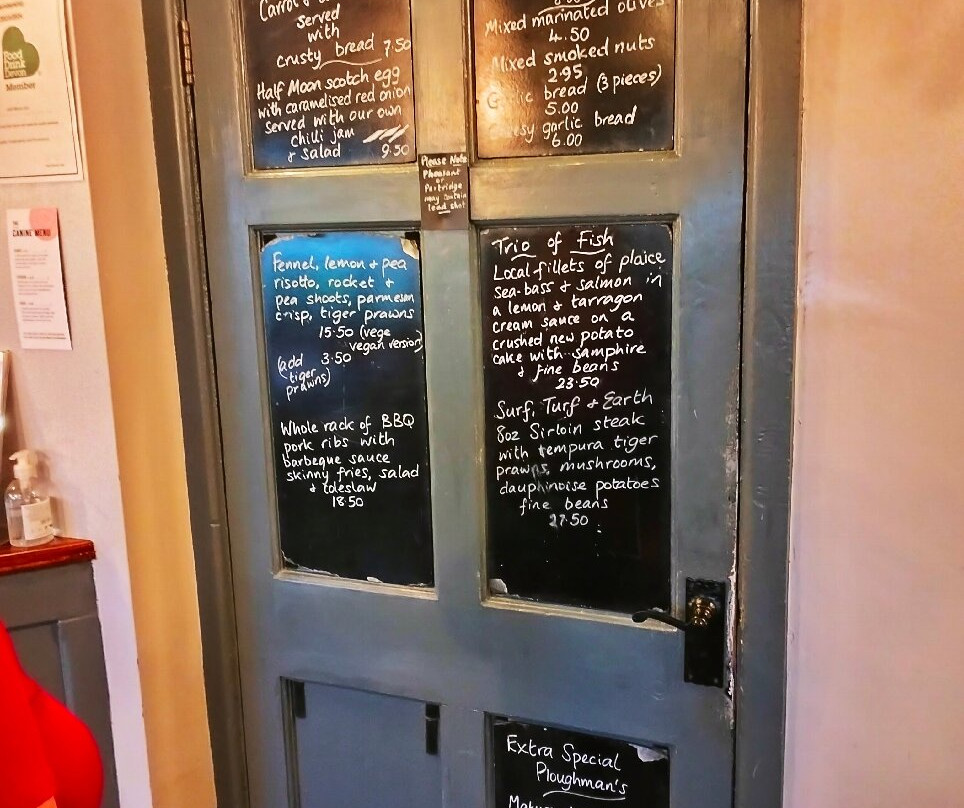 Food
Drink
Devon
Member
THE
CANINE MENU
Carrot &
served
with
crusty bread 7.50
Half Moon scotch egg
with caramelised red onion
served with our own
chilli jam
& salad 9.50
Mixed marinated olives
4.50
Mixed smoked nuts
2.95
bread (3 pieces)
5.00
garlic bread
6.00
Please Note
Pheasant
or
Partridge
may contain
lead shot
Fennel, lemon & pea
risotto, rocket &
pea shoots, parmesan
crisp, tiger prawns
15.50 (vege
vegan version)
(add 3.50
tiger
prawns)
Whole rack of BBQ
pork ribs with
barbeque sauce
skinny fries, salad
& coleslaw
18.50
Trio of Fish
Local fillets of plaice
sea-bass & salmon in
a lemon & tarragon
cream sauce on a
crushed new potato
cake with samphire
& fine beans
23.50
Surf, Turf & Earth
8oz Sirloin steak
with tempura tiger
prawns, mushrooms,
dauphinoise potatoes
fine beans
27.50
Extra Special
Ploughman's